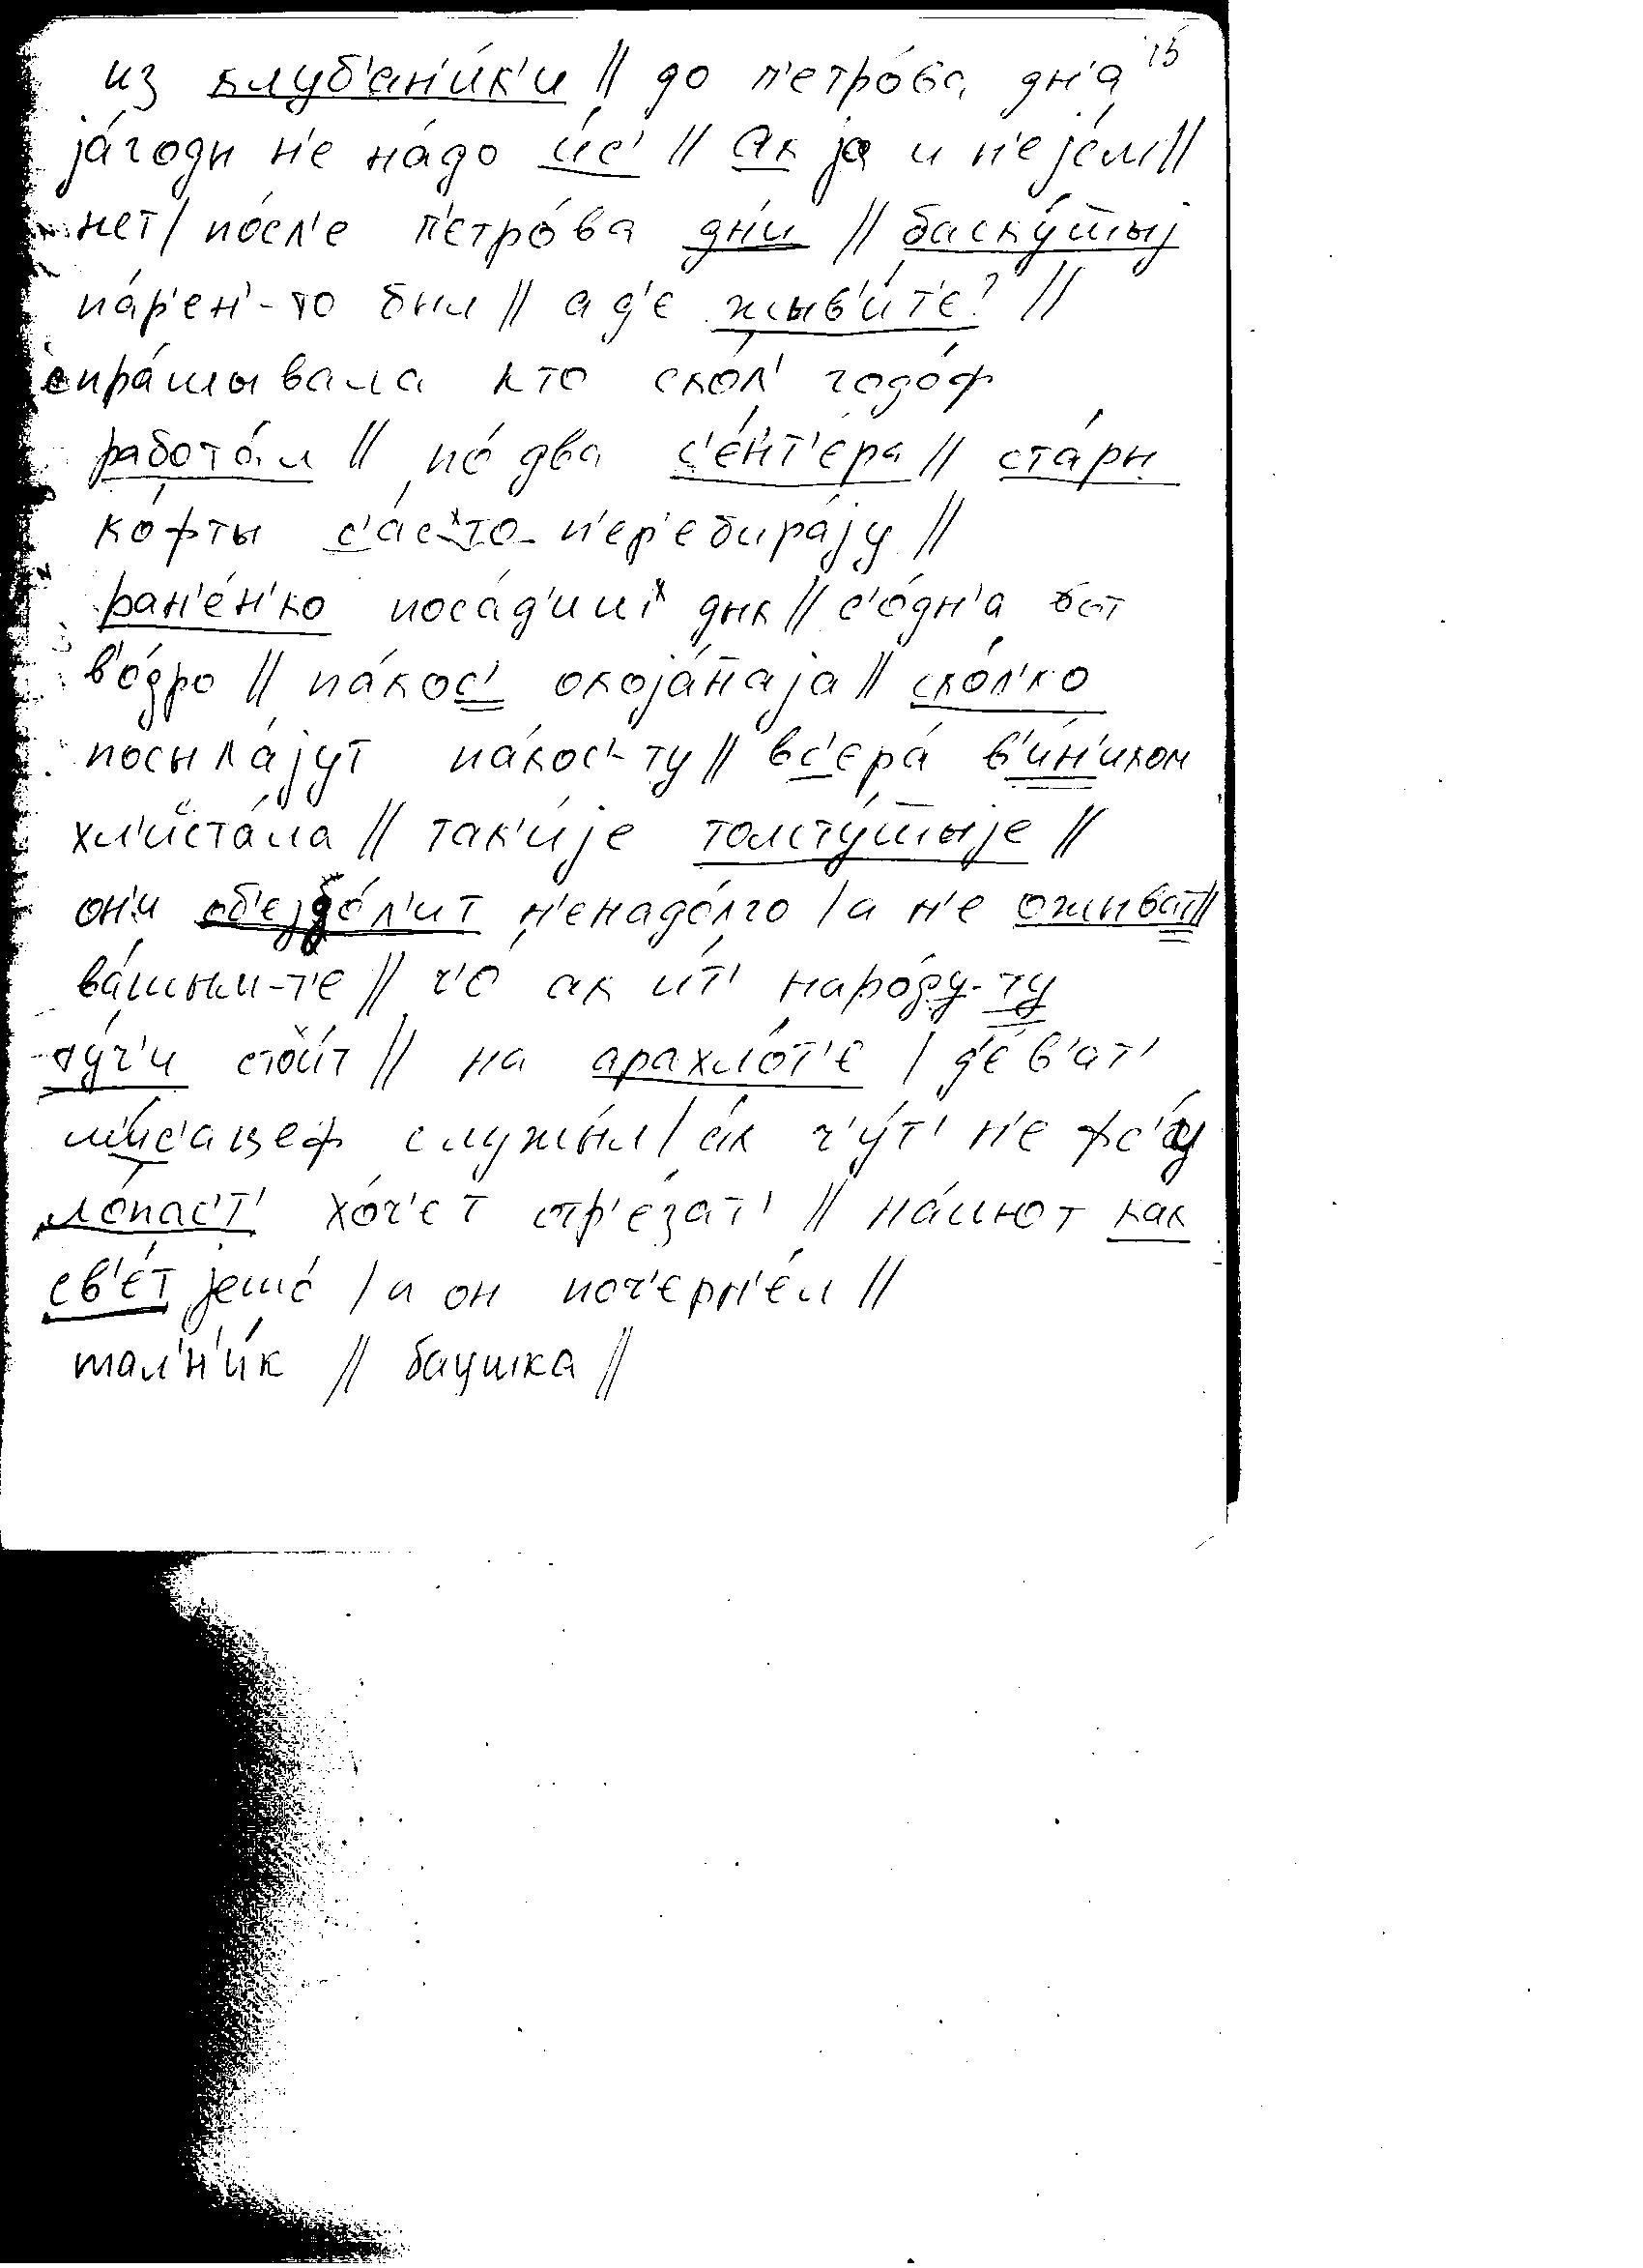 15
из клуб'ан'и́к'и // до п'етро́ва дн'а
jа́годы н'е на́до и́с' // ак jа и н'е jе́м //
нет / по́сл'е п'етро́ва дн'и // баску́шшыj
па́р'ен'-то был // а д'е жыв'и́т'е? //
спра́шывала кто скол' годо́ф
работа́л // по́ два с'е́нт'ера // ста́ры
ко́фты с'а́сто п'ер'ебира́jу //
ран'е́н'ко поса́д'иш дык // с'о́дн'а вот
в'о́дро // па́кос' окоjа́наjа // ско́л'ко
посыла́jут па́кос'-ту // вс'ера́ в'и́н'иком
хл'иста́ла // так'и́jе толсту́шшыjе //
он'и об'езбо́л'ит н'енадо́лго / а н'е ожыва́т //
ва́шым-т'е // ч'о ак ит' наро́ду-ту
ту́ч'и стои́т // на арахло́т'е / д'е́в'ат'
м'и́с'ацеф служы́л / ак ч'ут' н'е фс'у
ло́пас'т' хо́ч'ет отр'е́зат' // на́шют как
св'ет jешо́ / а он поч'ерн'е́л //
тал'н'и́к // баушка //